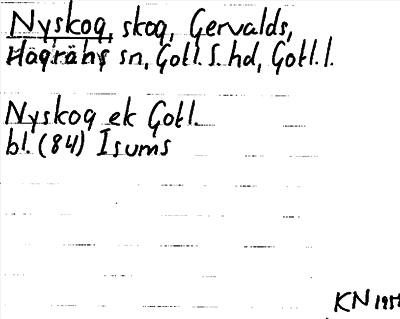 Nyskog, skog, Gervalds,
Hägrähs sn, Gotl. S. hd, Gotl. l.
Nyskog ek Gotl.
bl. (84) Isums
KN